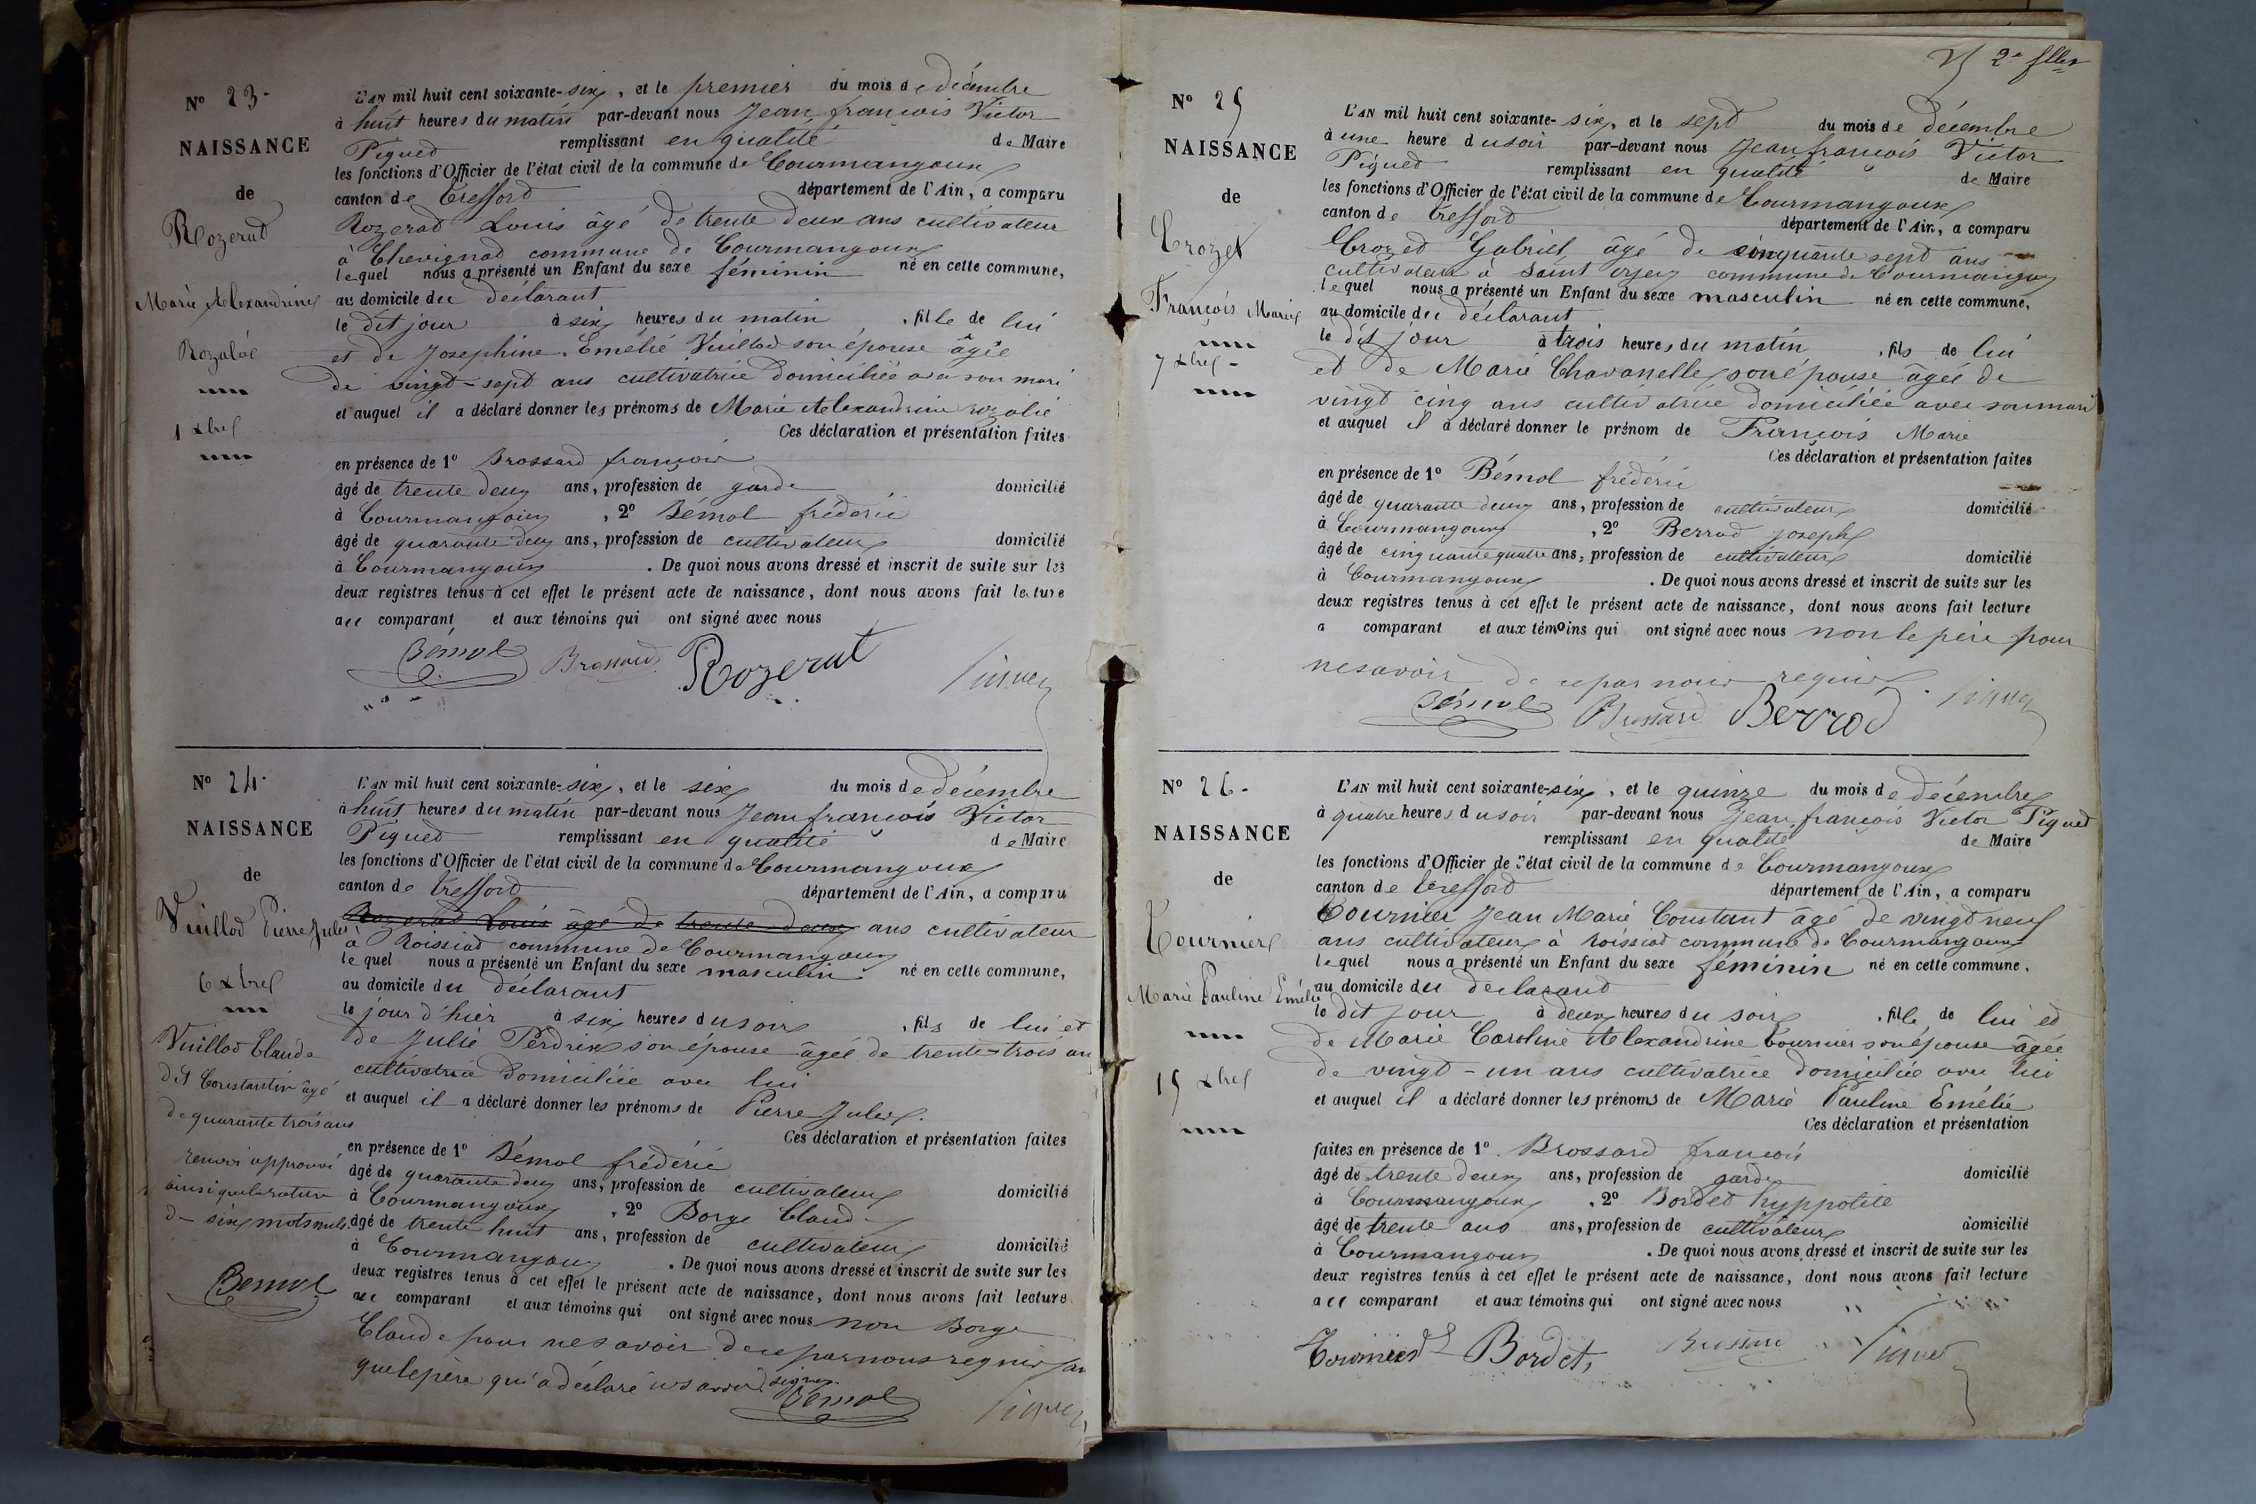 N° 23.
NAISSANCE
de
Rozerat
Marie Alexandrine
Rozalie
1 Xbre
L'AN mil huit cent soixante-six, et le premier du mois de décembre
à huit heures du matin par-devant nous Jean françois Victor
Piquet remplissant en qualité de Maire
les fonctions d'Officier de l'état civil de la commune de Courmangoux
canton de Treffort département de l'Ain, a comparu
Rozerat Louis âgé de trente deux ans cultivateur
à Chevignat commune de Courmangoux
lequel nous a présenté un Enfant du sexe féminin né en cette commune,
au domicile du déclarant
le dit jour à six heures du matin, fille de lui
et de Josephine Emélie Vuillod son épouse âgée
de vingt-sept ans cultivatrice domiciliée avec son mari
et auquel il a déclaré donner les prénoms de Marie Alexandrine rozalie
Ces déclaration et présentation faites
en présence de 1° Brossard françois
âgé de trente deux ans, profession de garde domicilié
à Courmangoux, 2° Bémol fréderic
âgé de quarante deux ans, profession de cultivateur domicilié
à Courmangoux. De quoi nous avons dressé et inscrit de suite sur les
deux registres tenus à cet effet le présent acte de naissance, dont nous avons fait lecture
au comparant et aux témoins qui ont signé avec nous
Bémol Brossard Rozerat Piquet
N° 24.
NAISSANCE
de
Vuillod Pierre Jules
6 Xbre
Vuillod Claude
dit Constantin âgé
de quarante trois ans
renvoi approuvé
ainsi que la rature
de six mots nuls.
Bemol
L'AN mil huit cent soixante-six, et le six du mois de décembre
à huit heures du matin par-devant nous Jean françois Victor
Piquet remplissant en qualité de Maire
les fonctions d'Officier de l'état civil de la commune de Courmangoux
canton de Treffort département de l'Ain, a comparu
Rozerat Louis âgé de trente deux ans cultivateur
à Roissiat commune de Courmangoux
lequel nous a présenté un Enfant du sexe masculin né en cette commune,
au domicile du déclarant
le jour d'hier à six heures du soir, fils de lui et
de Julie Perdrix son épouse âgée de trente-trois ans
cultivatrice domiciliée avec lui
et auquel il a déclaré donner les prénoms de Pierre Jules.
Ces déclaration et présentation faites
en présence de 1° Bémol fréderic
âgé de quarante deux ans, profession de cultivateur domicilié
à Courmangoux, 2° Borge Claude
âgé de trente huit ans, profession de cultivateur domicilié
à Courmangoux. De quoi nous avons dressé et inscrit de suite sur les
deux registres tenus à cet effet le présent acte de naissance, dont nous avons fait lecture
au comparant et aux témoins qui ont signé avec nous non Borge
Claude pour ne savoir de ce par nous requis
que le père qui a déclaré ne savoir signer.
Bémol Piquet
25 2e
N° 25
NAISSANCE
de
Crozet
François Marie
7 Xbre -
L'AN mil huit cent soixante-six, et le sept du mois de décembre
à une heure du soir par-devant nous Jean françois Victor
Piquet remplissant en qualité de Maire
les fonctions d'Officier de l'état civil de la commune de Courmangoux
canton de Treffort département de l'Ain, a comparu
Crozet Gabriel, âgé de cinquante sept ans
cultivateur à Saint commune de Courmangoux
lequel nous a présenté un Enfant du sexe masculin né en cette commune,
au domicile du déclarant
le dit jour à trois heures du matin, fils de lui
et de Marie Chavanelle son épouse âgée de
vingt cinq ans cultivatrice domiciliée avec son mari
et auquel il a déclaré donner le prénom de François Marie
Ces déclaration et présentation faites
en présence de 1° Bémol fréderic
âgé de quarante deux ans, profession de cultivateur domicilié
à Courmangoux, 2° Berrod joseph
âgé de cinquante quatre ans, profession de cultivateur domicilié
à Courmangoux. De quoi nous avons dressé et inscrit de suite sur les
deux registres tenus à cet effet le présent acte de naissance, dont nous avons fait lecture
a comparant et aux témoins qui ont signé avec nous non le père pour
ne savoir de ce par nous requis.
Bémol Brossard Berrod Piquet
N° 26.
NAISSANCE
de
Tournier
Marie Pauline Emélie
15 Xbre
L'AN mil huit cent soixante-six, et le quinze du mois de décembre
à quatre heures du soir par-devant nous Jean françois Victor Piquet
remplissant en qualité de Maire
les fonctions d'Officier de l'état civil de la commune de Courmangoux
canton de Treffort département de l'Ain, a comparu
Tournier Jean Marie Constant âgé de vingt neuf
ans cultivateur à Roissiat commune de Courmangoux
lequel nous a présenté un Enfant du sexe féminin né en cette commune,
au domicile du déclarant
le dit jour à deux heures du soir, fille de lui et
de Marie Caroline Alexandrine Tournier son épouse âgée
de vingt-un ans cultivatrice domiciliée avec lui
et auquel il a déclaré donner les prénoms de Marie Pauline Emélie
Ces déclaration et présentation
faites en présence de 1° Brossard françois
âgé de trente deux ans, profession de garde domicilié
à Courmangoux, 2° Bordet hyppolite
âgé de trente ans ans, profession de cultivateur domicilié
à Courmangoux. De quoi nous avons dressé et inscrit de suite sur les
deux registres tenus à cet effet le présent acte de naissance, dont nous avons fait lecture
au comparant et aux témoins qui ont signé avec nous
Tournier Bordet Brossard Piquet